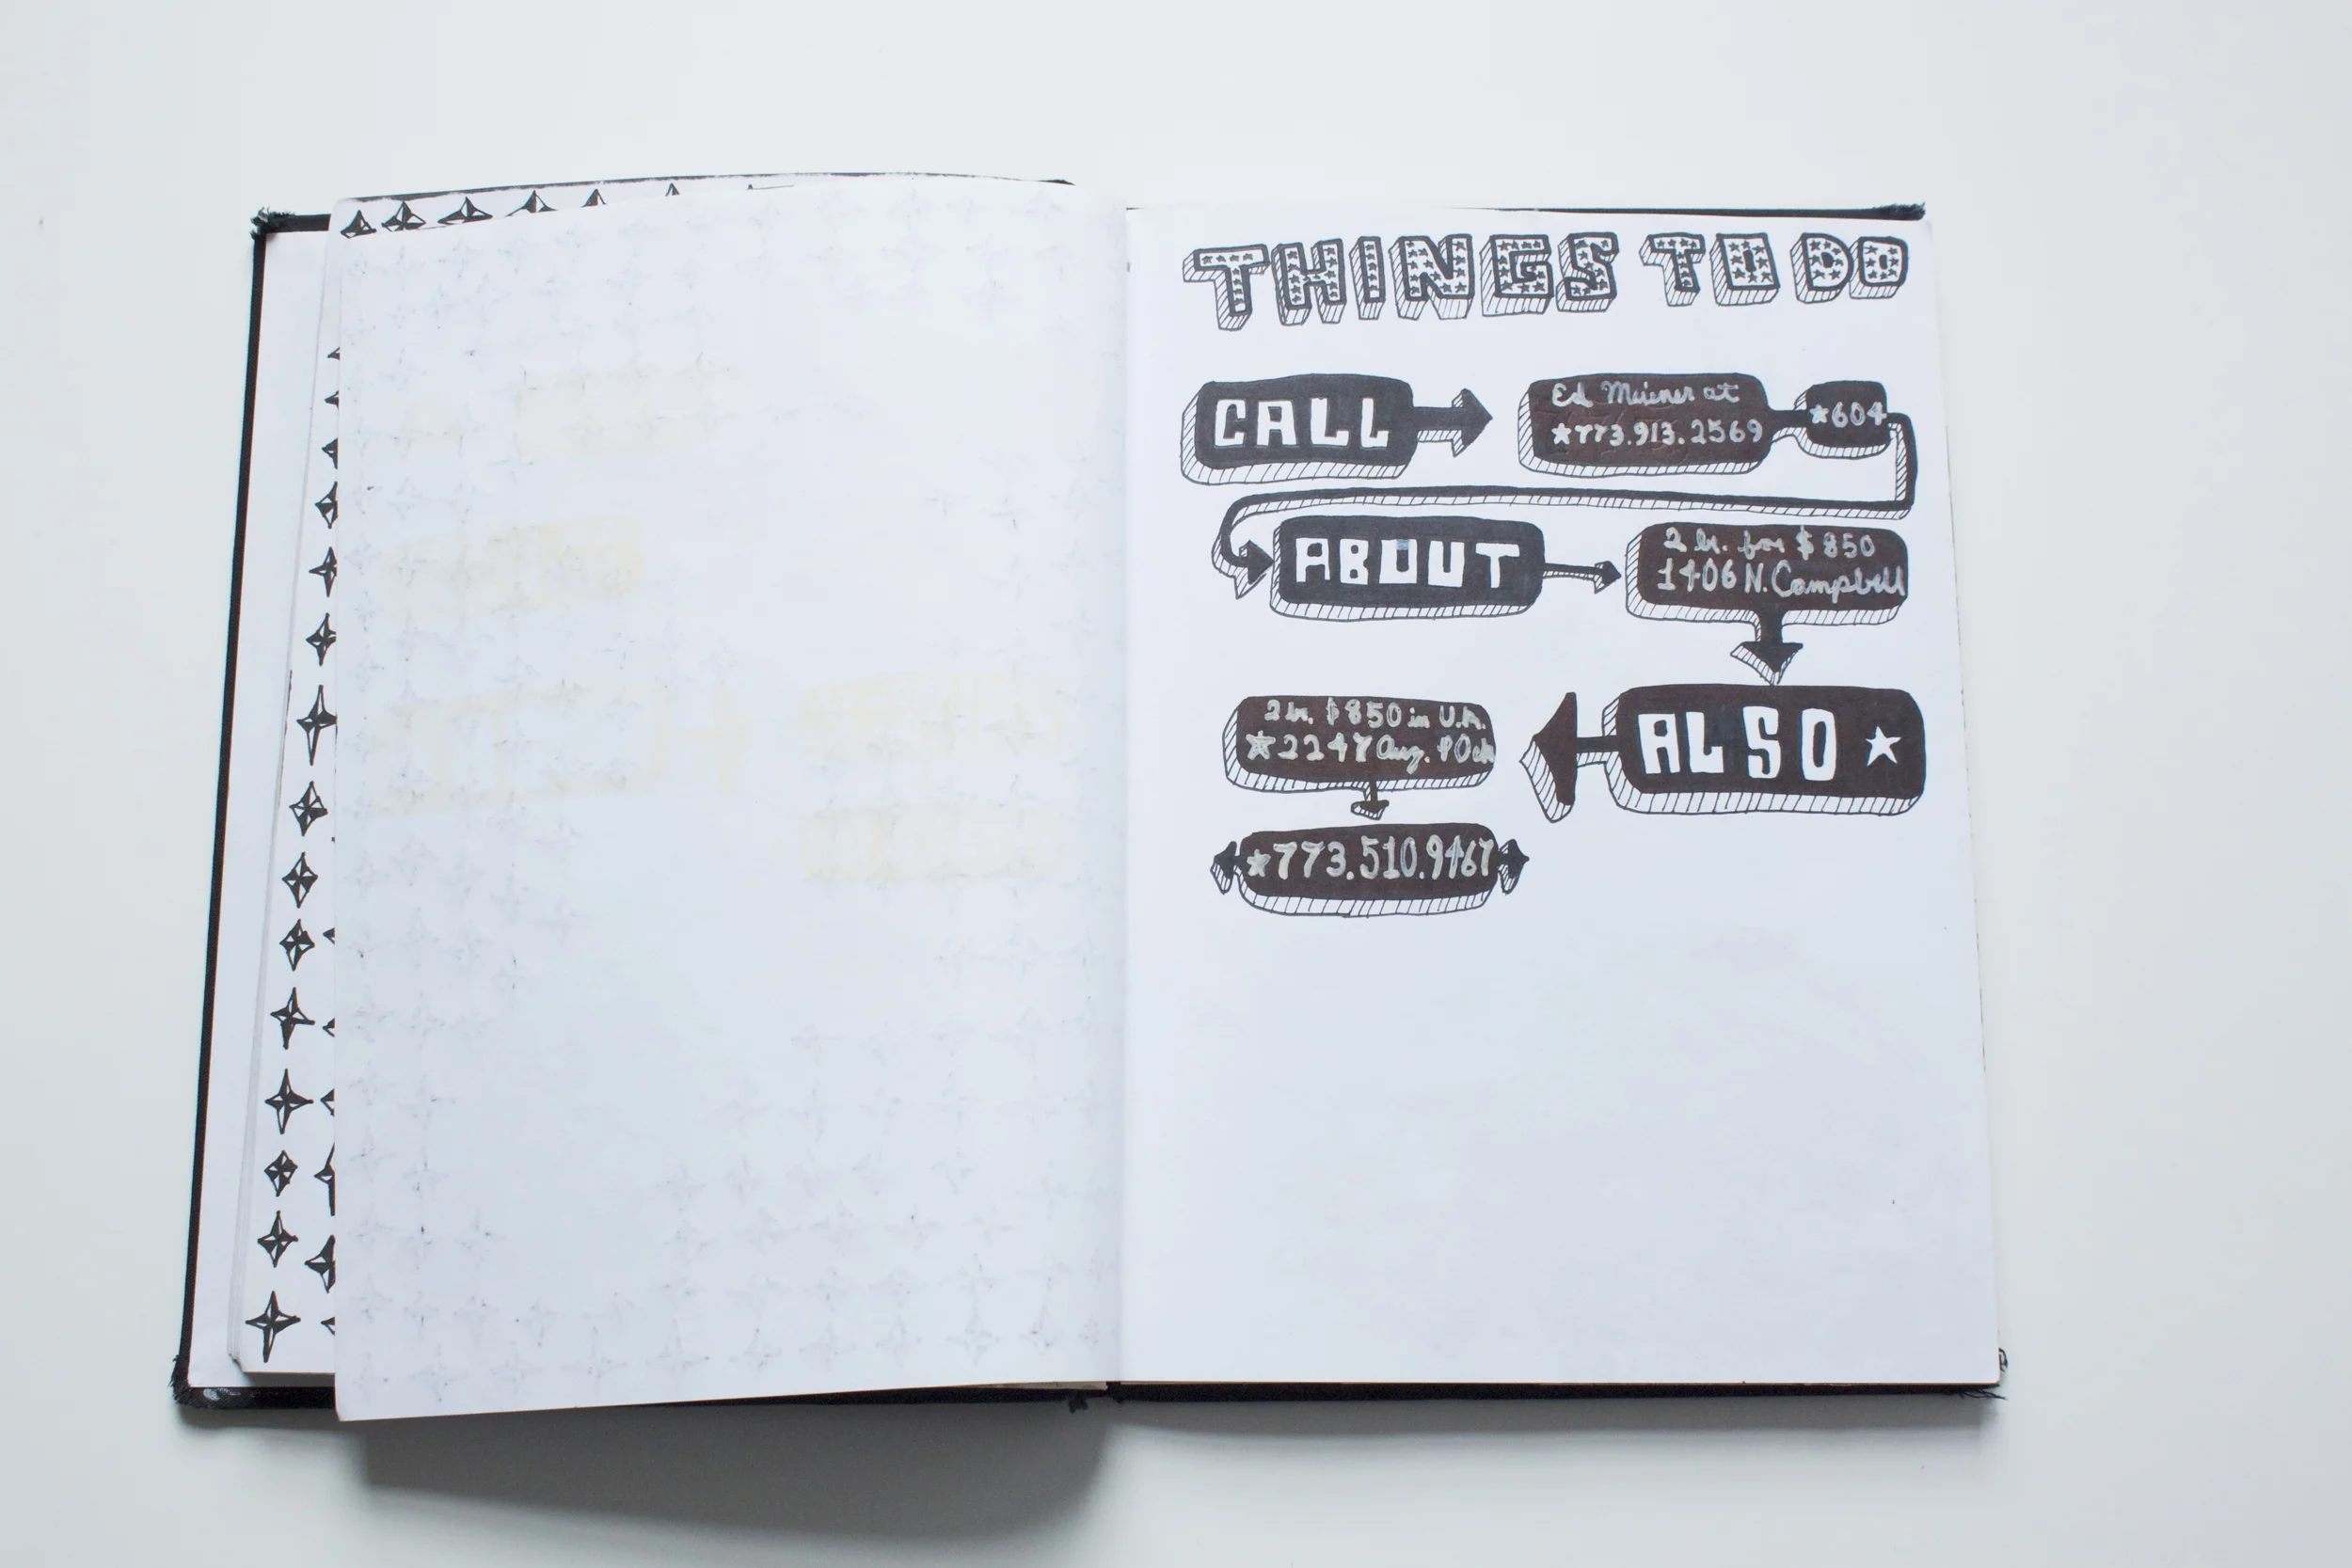 THINGS TO DO
CALL
Ed at
★773.913.2569
★604
ABOUT
2 br. for $850
1406 N. Campbell
ALSO ★
2 br. $850 in U.K.
★2247 Aug. 1 Oct
★773.510.9467